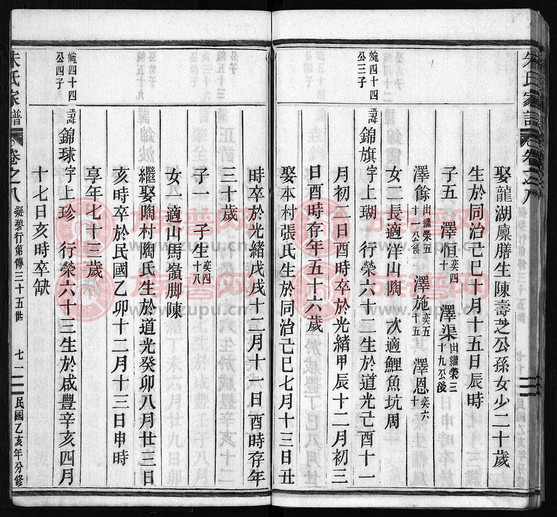 朱氏家譜 卷之八
娶龍湖廩膳生陳壽芝公孫女少二十歲
生於同治己巳十月十五日辰時
子五 澤恒奕四 澤渠出繼榮三十九公後
澤餘出繼榮五十二公後 澤施奕五十一 澤恩奕六十五
女二長適洋山閑 次適鯉魚坑周
純四四十公三子
諱錦旗字上瑚 行榮六十二生於道光己酉十一
月初二日酉時卒於光緒甲辰十二月初三
日酉時存年五十六歲
娶本村張氏生於同治己巳七月十三日丑
時卒於光緒戊戌十二月十一日酉時存年
三十歲
子一 子生奕四十八
女一適山馬嶺脚陳
繼娶陶村陶氏生於道光癸卯八月廿三日
亥時卒於民國乙卯十二月十三日申時
享年七十三歲
純四十四公四子
諱錦球字上珍 行榮六十三生於咸豐辛亥四月
十七日亥時卒缺
朱氏家譜 卷之八 凝碧行第傳三十五世 七二 民國乙亥年分修